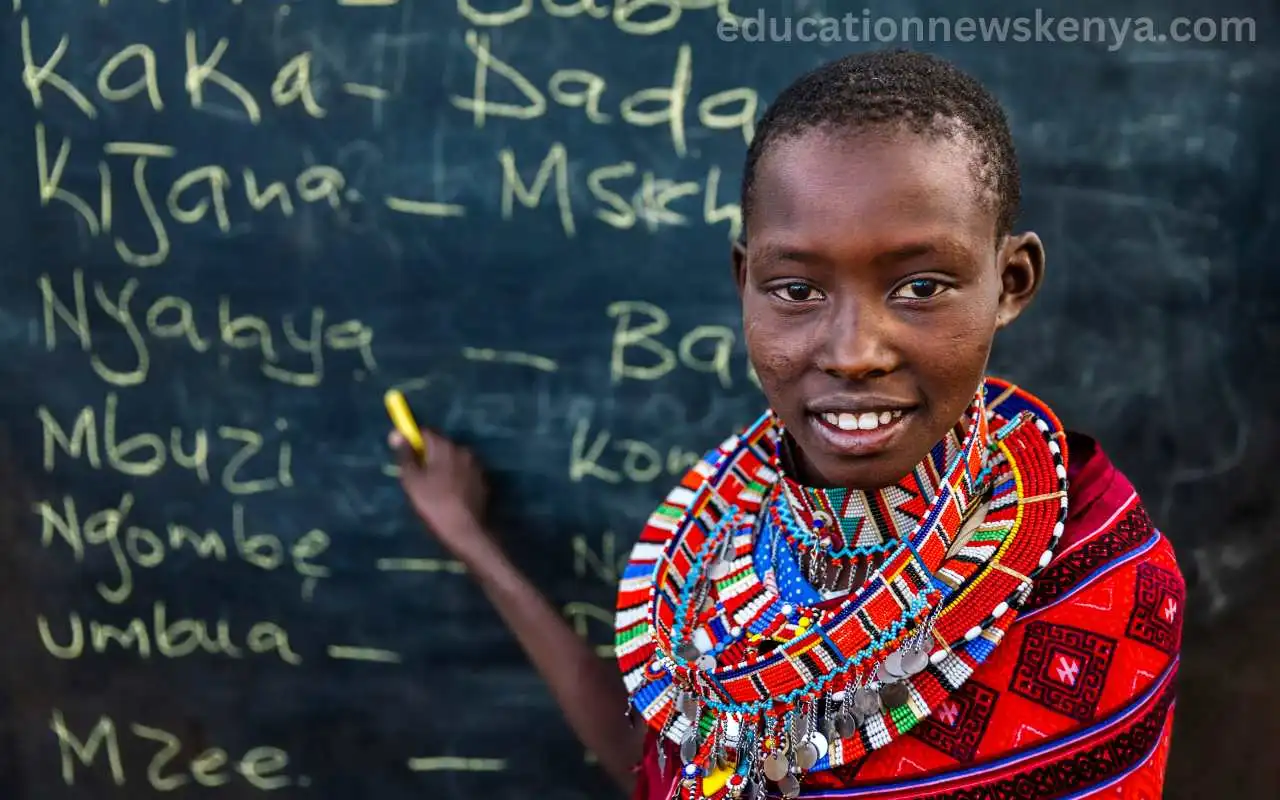 educationnewskenya.com
– Baba
Kaka – Dada
Kijana –
Nyabya –
Mbuzi –
Ngombe –
Umbwa –
Mzee –